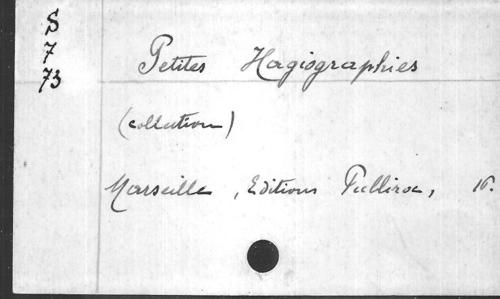 S
7
73
Petites Hagiographies
(collection)
Marseille, Editions Publiroc, 16.